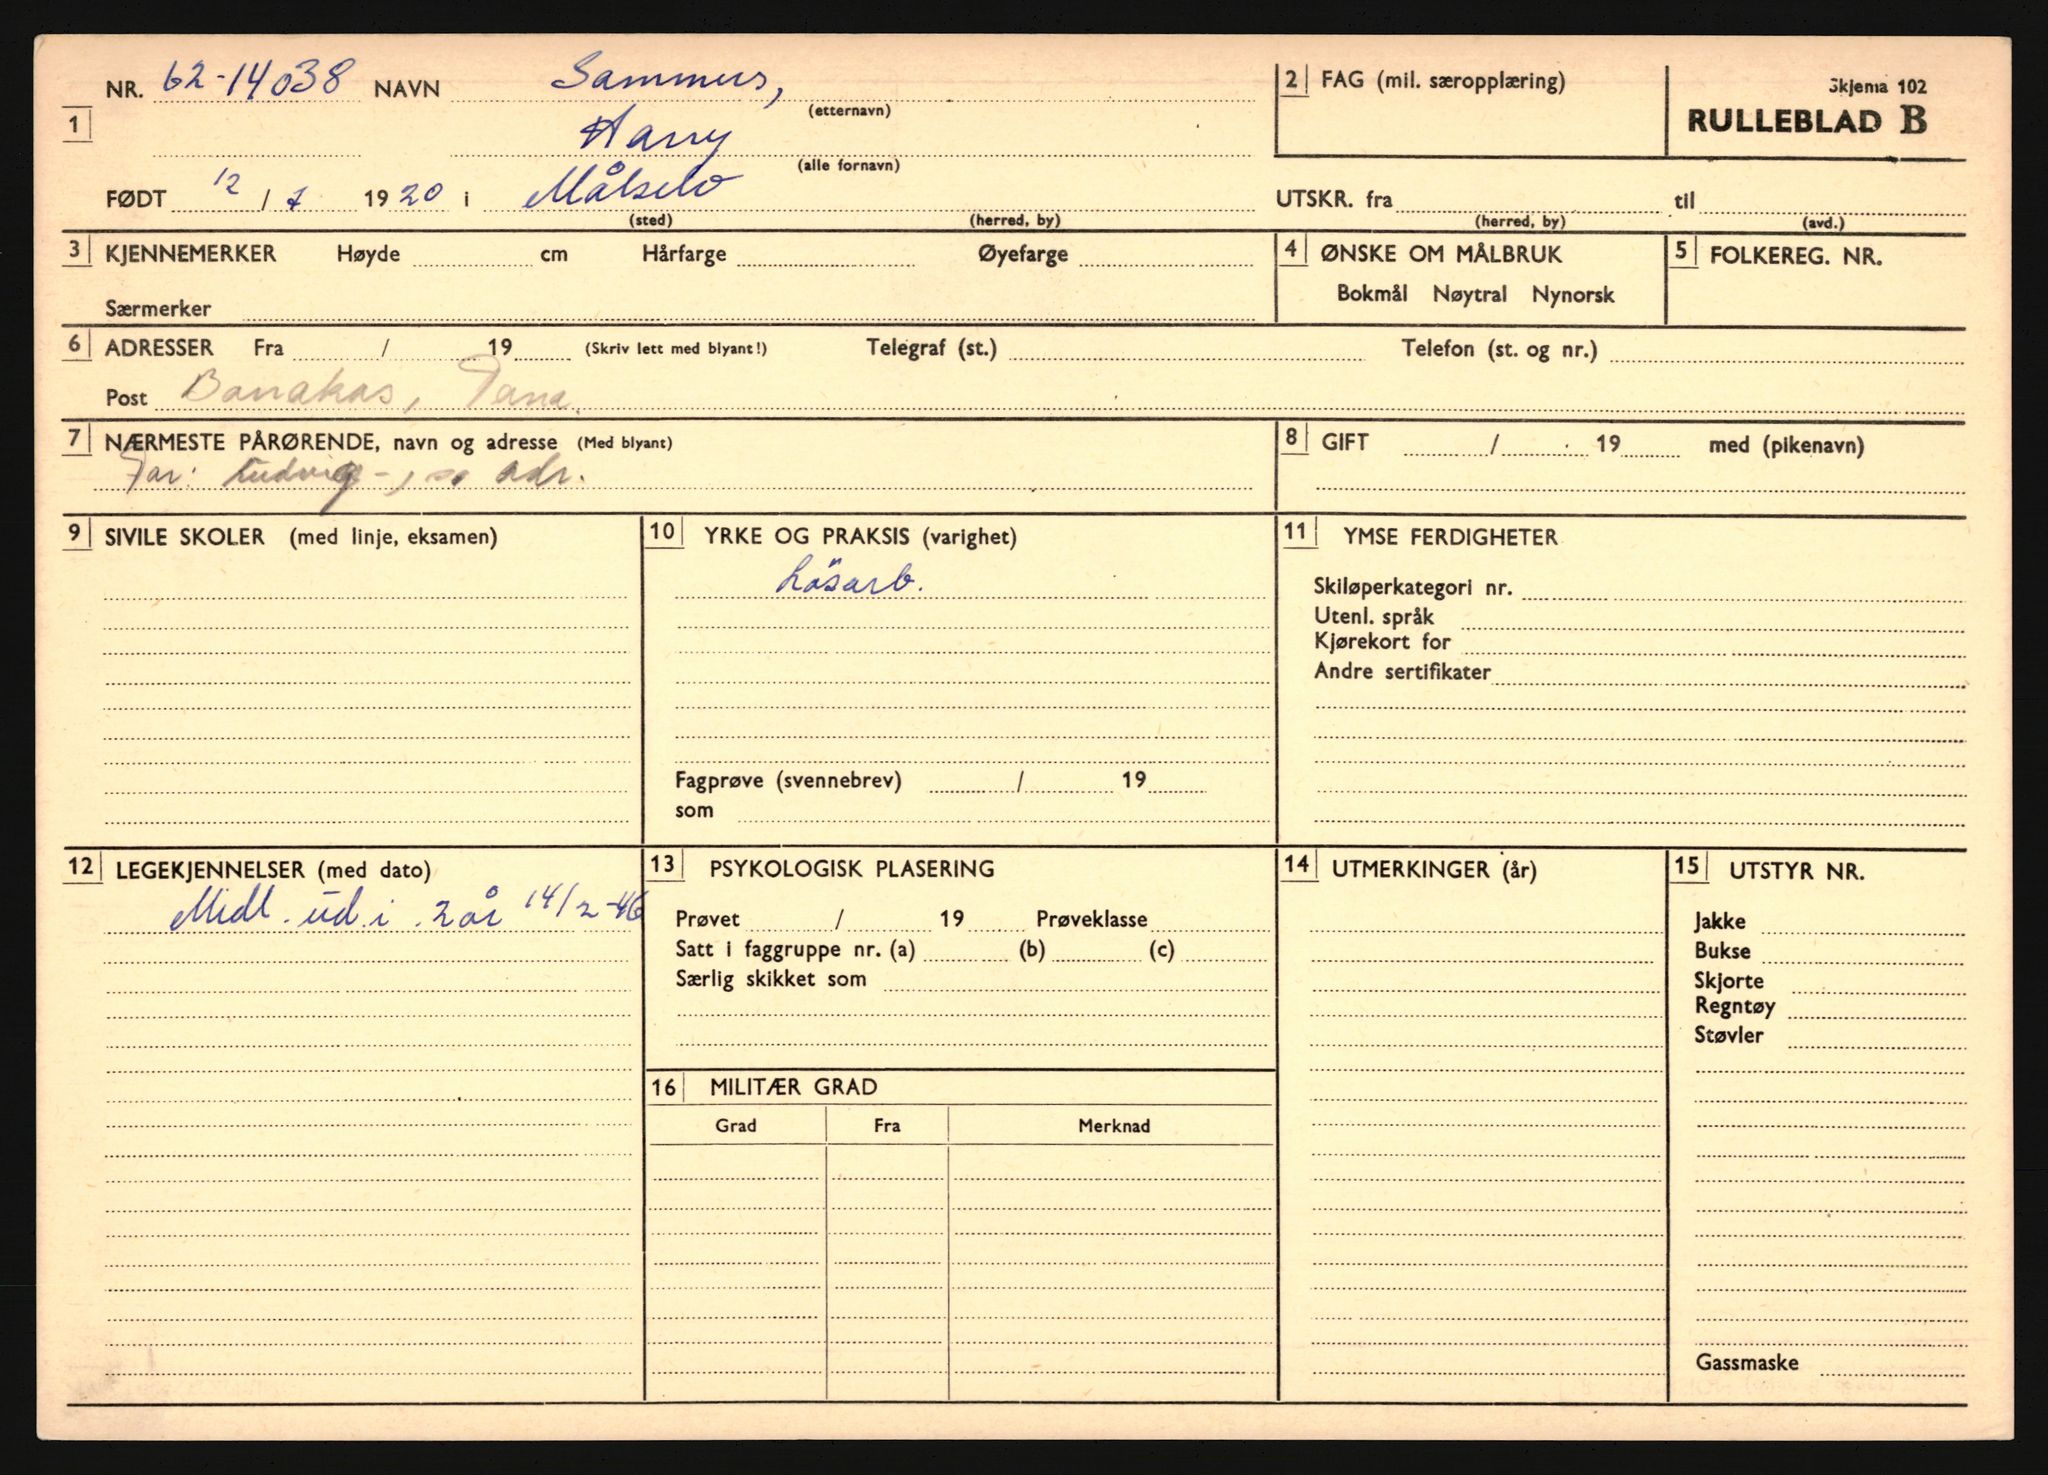 1 NR. 62-14038 NAVN Sammus, 2 FAG (mil. særopplæring) Skjema 102
(etternavn) RULLEBLAD B
Harry
(alle fornavn)
FØDT 12 / 7 1920 i Målselv UTSKR. fra til
(sted) (herred, by) (herred, by) (avd.)
3 KJENNEMERKER Høyde cm Hårfarge Øyefarge 4 ØNSKE OM MÅLBRUK 5 FOLKEREG. NR.
Bokmål Nøytral Nynorsk
Særmerker
6 ADRESSER Fra / 19 (Skriv lett med blyant!) Telegraf (st.) Telefon (st. og nr.)
Post Bonakas, Tana.
7 NÆRMESTE PÅRØRENDE, navn og adresse (Med blyant) 8 GIFT / 19 med (pikenavn)
Far: Ludvig -, adr.
9 SIVILE SKOLER (med linje, eksamen) 10 YRKE OG PRAKSIS (varighet) 11 YMSE FERDIGHETER
Lösarb.
Skiløperkategori nr.
Utenl. språk
Kjørekort for
Andre sertifikater
Fagprøve (svennebrev) / 19
som
12 LEGEKJENNELSER (med dato) 13 PSYKOLOGISK PLASERING 14 UTMERKINGER (år) 15 UTSTYR NR.
Midl. ud. i 2 år 14/2-46
Prøvet / 19 Prøveklasse Jakke
Satt i faggruppe nr. (a) (b) (c) Bukse
Særlig skikket som Skjorte
Regntøy
Støvler
16 MILITÆR GRAD
Grad Fra Merknad
Gassmaske